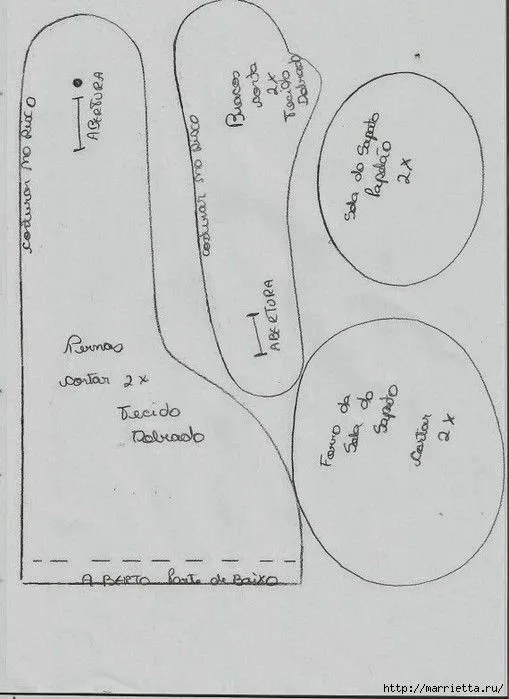 costurar no Risco
ABERTURA
Pernas
cortar 2x
Tecido
Dobrado
ABERTO Parte de Baixo
costurar no Risco
Braços
corta
2x
Tecido
Dobrado
ABERTURA
Sola do Sapato
Papelão
2x
Forro da
Sola do
Sapato
cortar
2x
http://marrietta.ru/